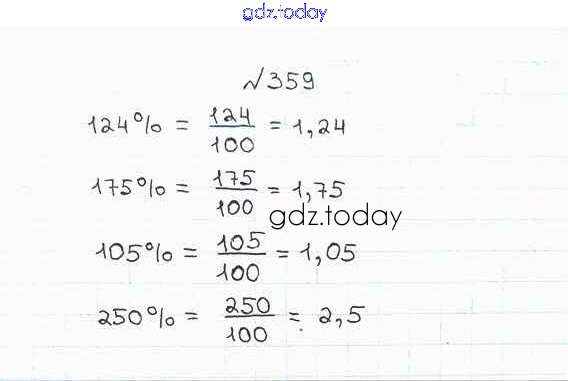 gdz.today
№359
124% = 124/100 = 1,24
175% = 175/100 = 1,75
gdz.today
105% = 105/100 = 1,05
250% = 250/100 = 2,5